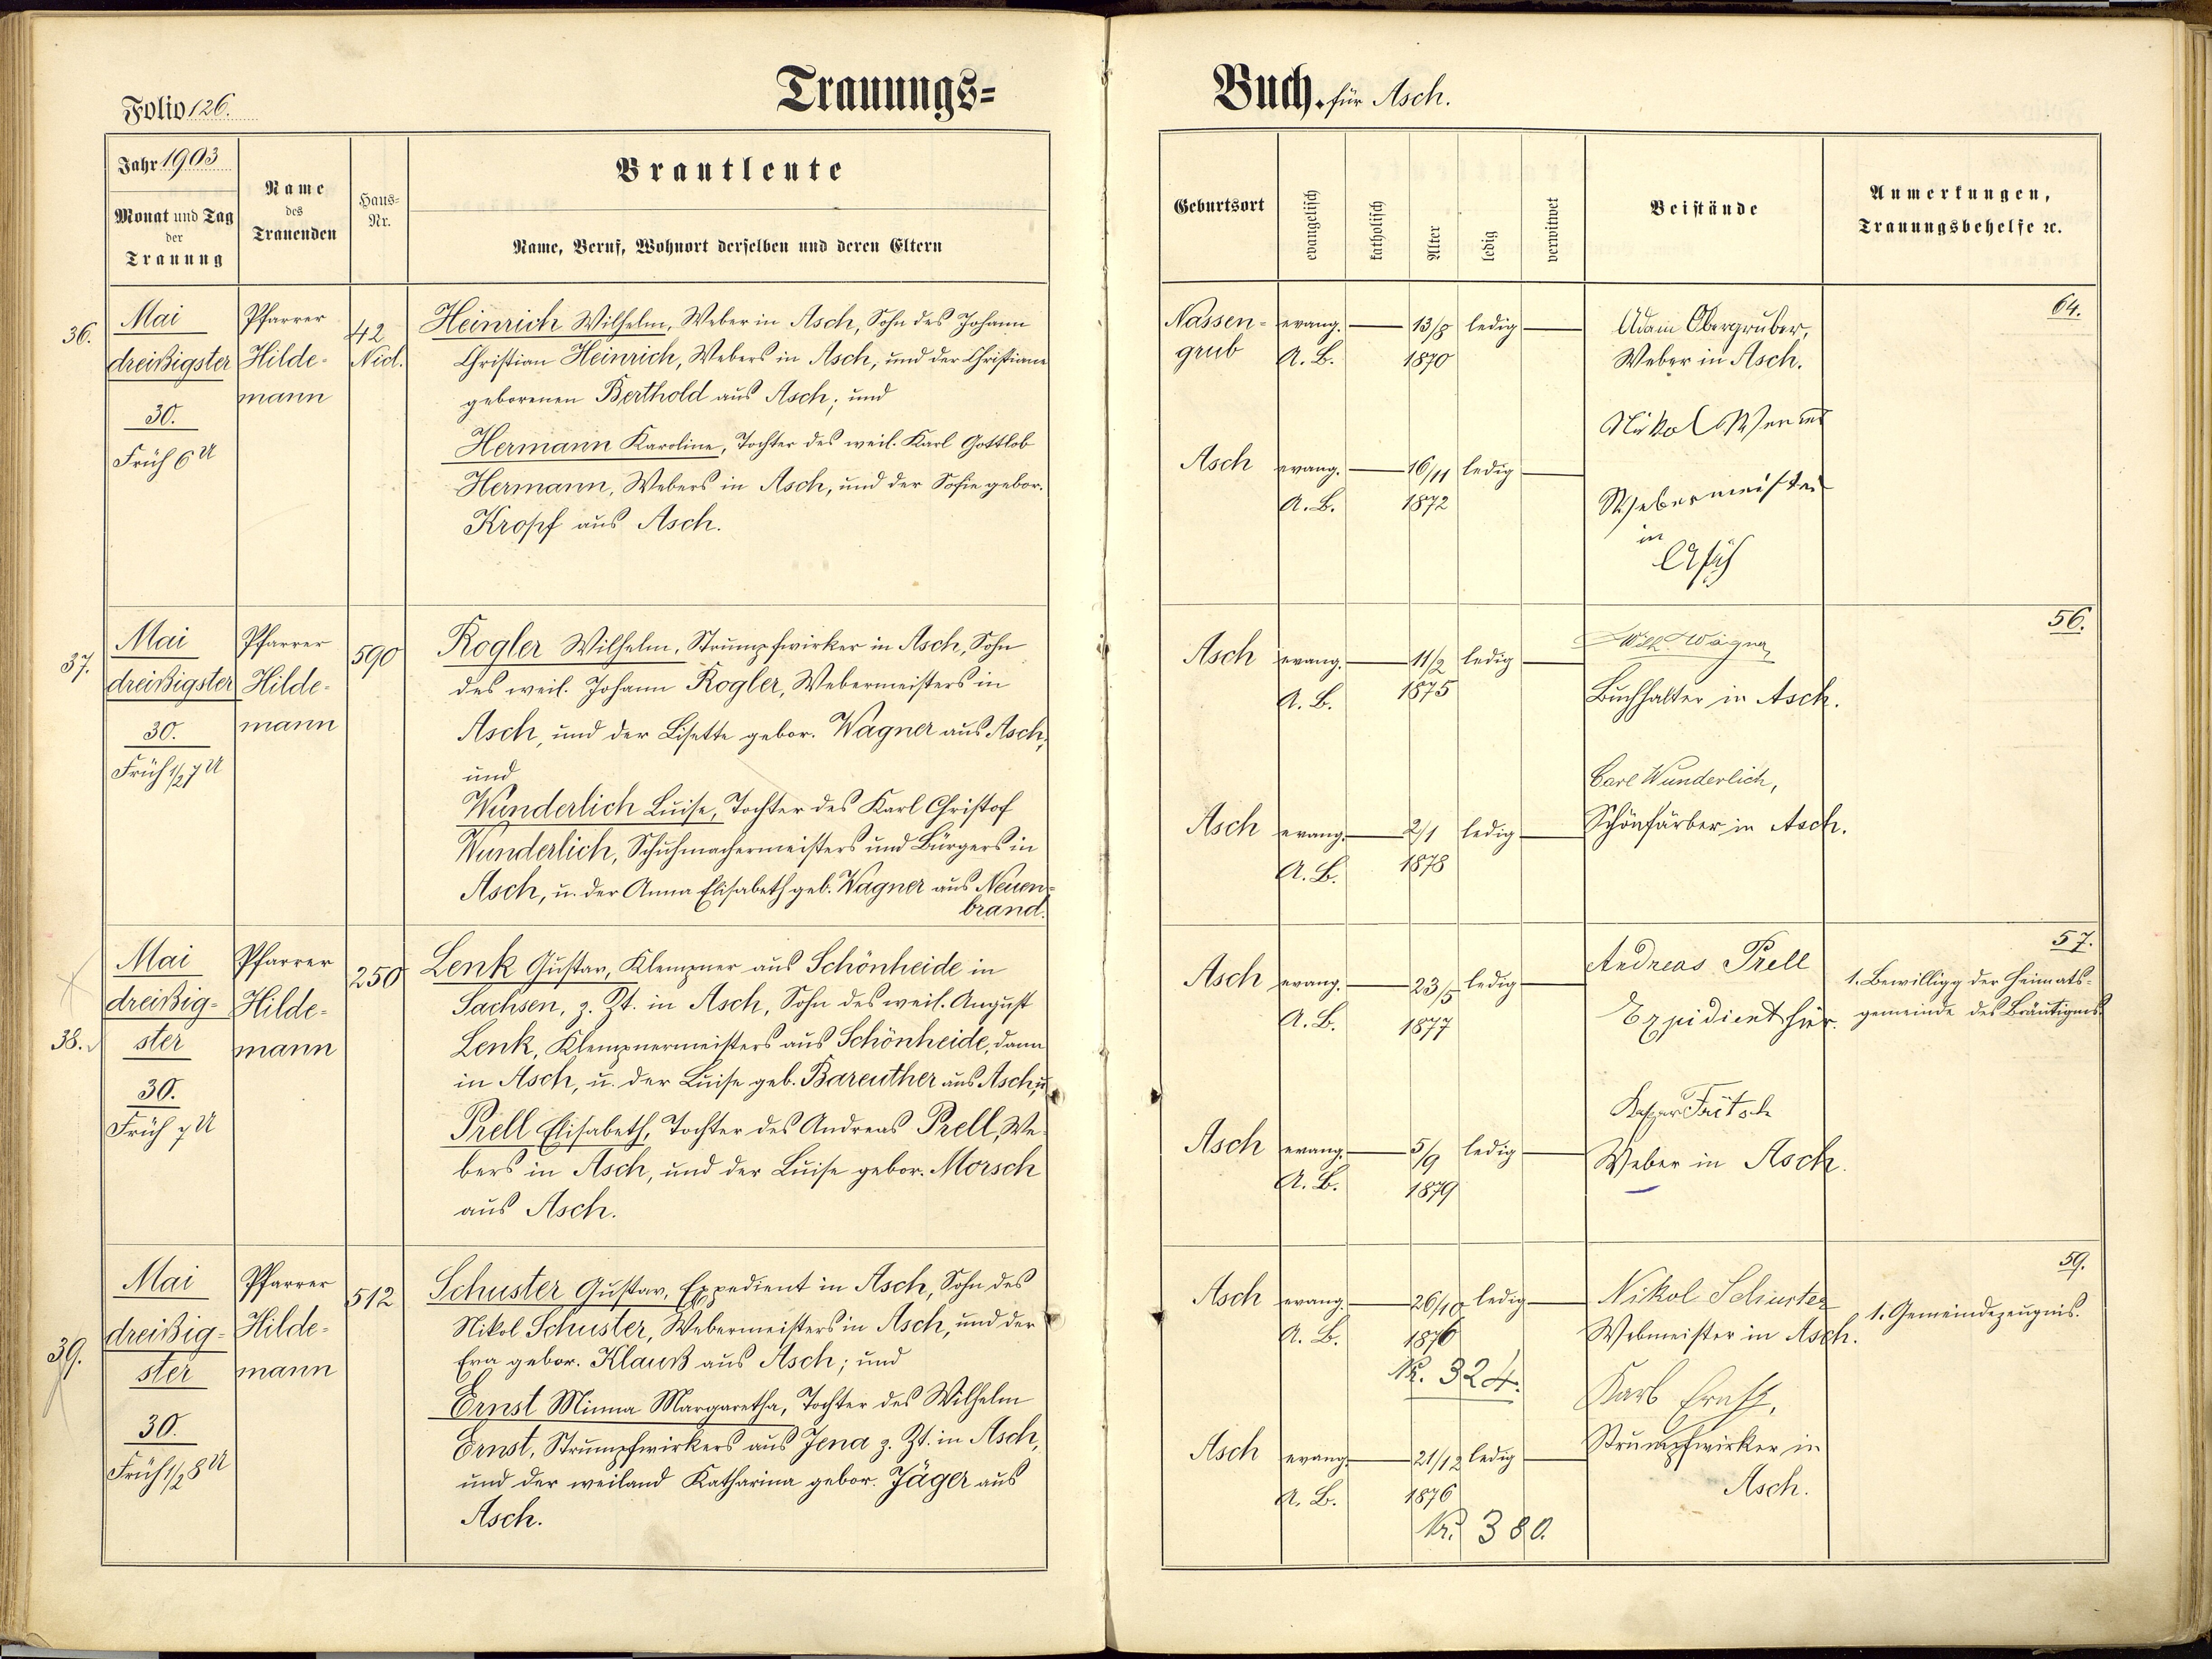 Folio 126.
Trauungs=
Jahr 1903
Monat und Tag
der
Trauung
Name
des
Trauenden
Haus-
Nr.
Brautleute
Name, Beruf, Wohnort derselben und deren Eltern
36.
Mai
dreißigster
30.
Früh 6 U
Pfarrer
Hilde-
mann
42
Nicl.
Heinrich Wilhelm, Weber in Asch, Sohn des Johann
Christian Heinrich, Webers in Asch, und der Christiane
geborenen Berthold aus Asch; und
Hermann Karoline, Tochter des weil. Karl Gottlob
Hermann, Webers in Asch, und der Sofie gebor.
Kropf aus Asch.
37.
Mai
dreißigster
30.
Früh 1/2 7 U
Pfarrer
Hilde-
mann
590
Rogler Wilhelm, Strumpfwirker in Asch, Sohn
des weil. Johann Rogler, Webermeisters in
Asch, und der Lisette gebor. Wagner aus Asch;
und
Wunderlich Luise, Tochter des Karl Christof
Wunderlich, Schuhmachermeisters und Bürgers in
Asch, u. der Anna Elisabeth geb. Wagner aus Neuen-
brand.
38.
Mai
dreißig-
ster
30.
Früh 7 U
Pfarrer
Hilde-
mann
250
Lenk Gustav, Klempner aus Schönheide in
Sachsen, z. Zt. in Asch, Sohn des weil. August
Lenk, Klempnermeisters aus Schönheide, dann
in Asch, u. der Luise geb. Bareuther aus Asch; u.
Prell Elisabeth, Tochter des Andreas Prell, We-
bers in Asch, und der Luise gebor. Morsch
aus Asch.
39.
Mai
dreißig-
ster
30.
Früh 1/2 8 U
Pfarrer
Hilde-
mann
512
Schuster Gustav, Expedient in Asch, Sohn des
Nikol Schuster, Webermeisters in Asch, und der
Eva gebor. Klauß aus Asch; und
Ernst Minna Margaretha, Tochter des Wilhelm
Ernst, Strumpfwirkers aus Jena z. Zt. in Asch,
und der weiland Katharina gebor. Jäger aus
Asch.
Buch. für Asch.
Geburtsort
evangelisch
katholisch
Alter
ledig
verwitwet
Beistände
Anmerkungen,
Trauungsbehelfe ꝛc.
Nassen-
grub
evang.
A. B.
13/8
1870
ledig
Adam Obergruber,
Weber in Asch.
64.
Asch
evang.
A. B.
16/11
1872
ledig
Nikol Werner
Webermeister
in
Asch
Asch
evang.
A. B.
11/2
1875
ledig
Wilh. Wagner
Buchhalter in Asch.
56.
Asch
evang.
A. B.
2/1
1878
ledig
Carl Wunderlich,
Schönfärber in Asch.
Asch
evang.
A. B.
23/5
1877
ledig
Andreas Prell
Expidient hier.
57.
1. Bewilligg der Heimats-
gemeinde des Bräutigms.
Asch
evang.
A. B.
5/9
1879
ledig
Fritsch
Weber in Asch.
Asch
evang.
A. B.
26/10
1876
Nr. 324.
ledig
Nikol Schuster
Webmeister in Asch.
59.
1. Gemeindezeugnis.
Asch
evang.
A. B.
21/12
1876
Nr. 380.
ledig
Karl Ernst,
Strumpfwirker in
Asch.